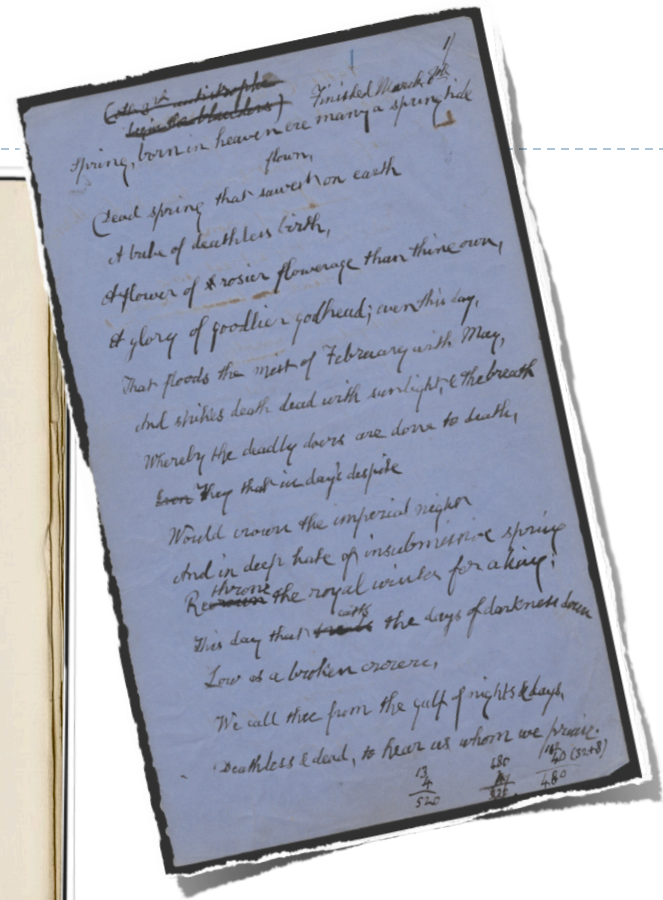 1/
Finished March 8th
Spring, born in heaven ere many a springtide
flown,
Dead spring that sawest on earth
A babe of deathless birth,
A flower of rosier flowerage than thine own,
A glory of goodlier godhead; even this day,
That floods the mist of February with May,
And strikes death dead with sunlight, & the breath
Whereby the deadly doers are done to death,
They that in day's despite
Would crown the imperial night
And in deep hate of insubmissive spring
Rethrone the royal winter for a king:
This day that casts the days of darkness down
Low as a broken crown,
We call thee from the gulf of nights & days,
Deathless & dead, to hear us whom we praise.
13
4
520
480
40 (32+8)
480